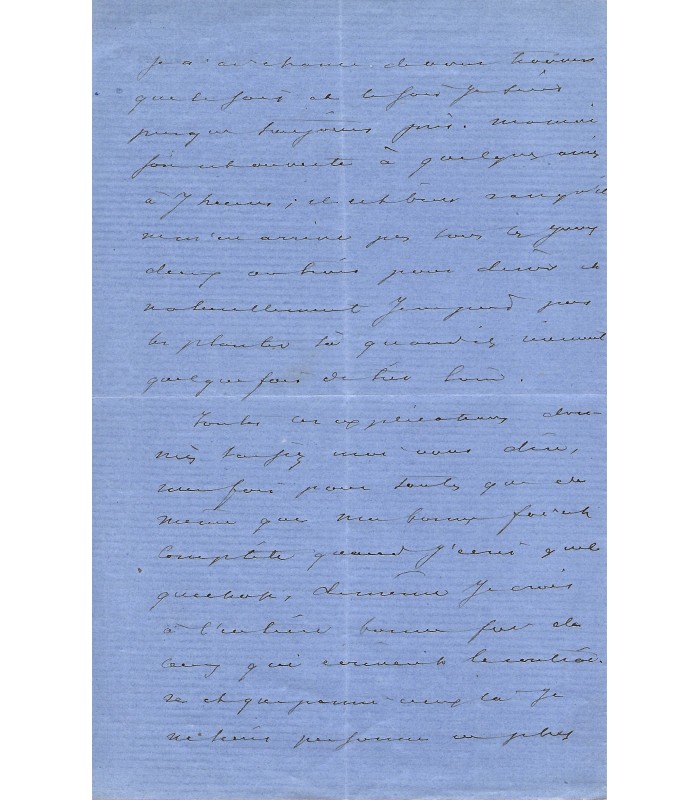 Je n'ai chance de vous trouver
que le soir et le soir je suis
presque toujours pris. Ma maison
est ouverte à quelques amis
à 7 heures ; il est bien rare qu'il
ne m'en arrive pas tous les jours
deux ou trois pour dîner et
naturellement je ne peux pas
les planter là quand ils viennent
quelquefois de très loin.
Toutes ces explications don-
nées laissez moi vous dire,
une fois pour toutes que de
même que ma bonne foi est
complète quand j'écris quel
que chose, de même je crois
à l'entière bonne foi de
ceux qui écrivent le contrai-
re et que parmi ceux là je
ne tiens personne en plus